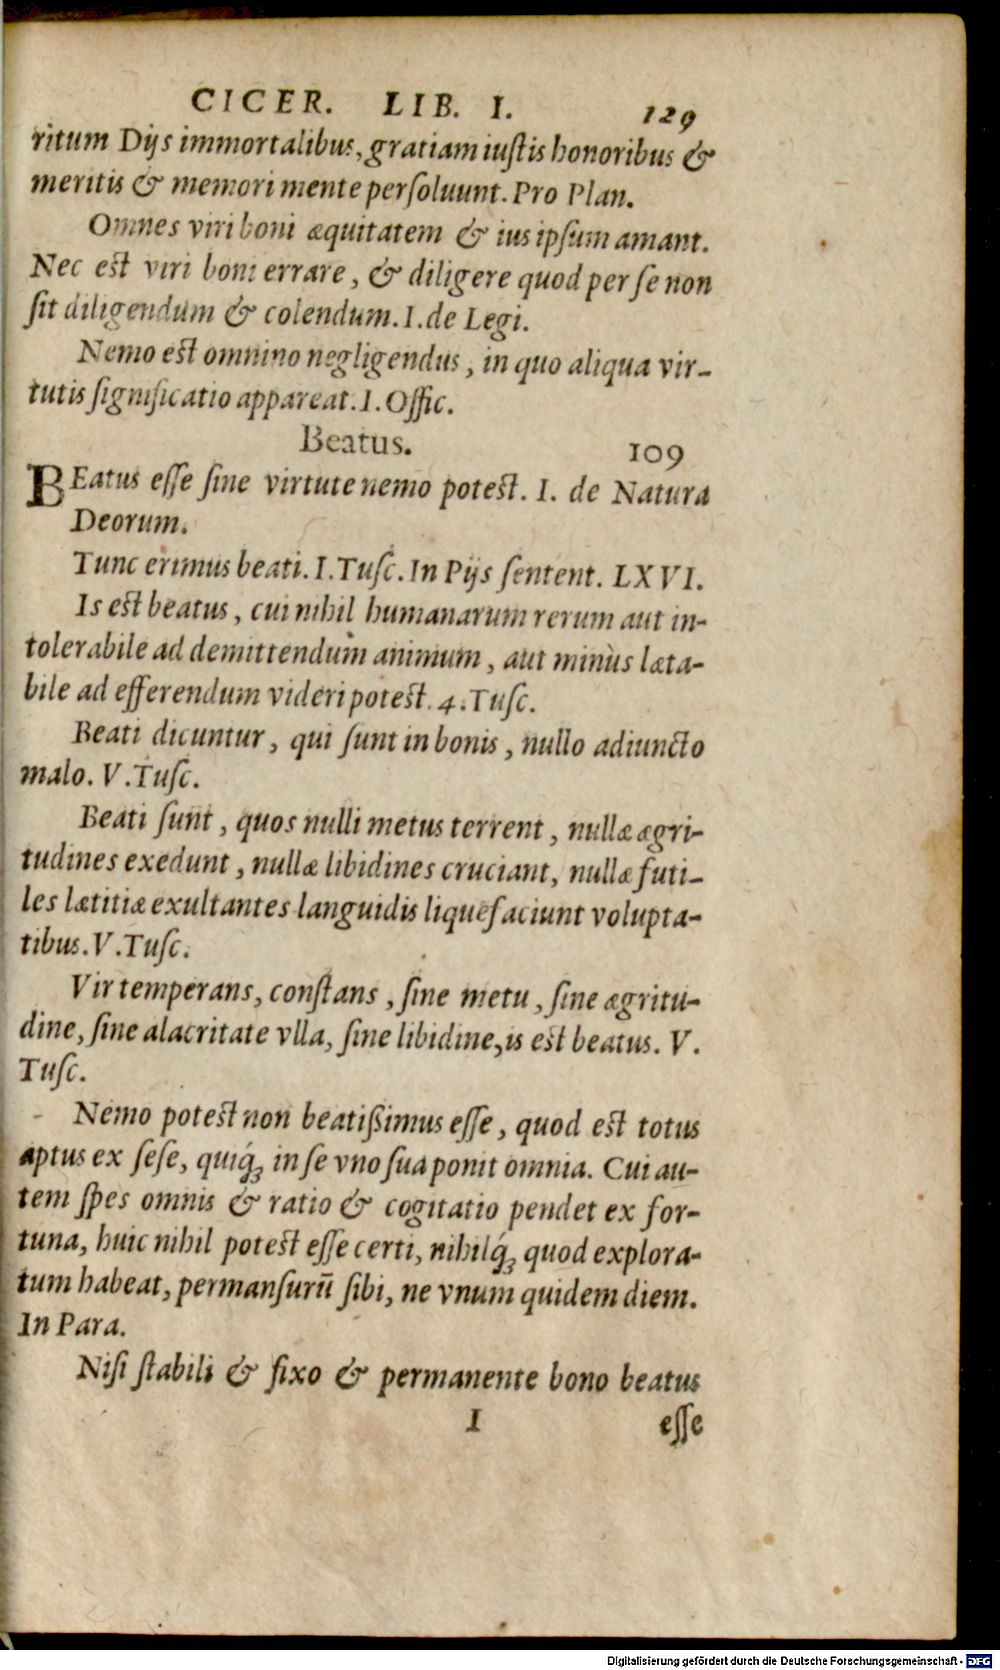 CICER. LIB. I. 129
ritum Dijs immortalibus, gratiam iuſtis honoribus &
meritis & memori mente perſoluunt. Pro Plan.
Omnes viri boni æquitatem & ius ipſum amant.
Nec est viri boni errare, & diligere quod per ſe non
ſit diligendum & colendum. I. de Legi.
Nemo est omnino negligendus, in quo aliqua vir-
tutis ſignificatio appareat. I. Offic.
Beatus. 109
BEatus eſſe ſine virtute nemo potest. I. de Natura
Deorum.
Tunc erimus beati. I. Tuſc. In Pijs ſentent. LXVI.
Is est beatus, cui nihil humanarum rerum aut in-
tolerabile ad demittendum animum, aut minùs læta-
bile ad efferendum videri potest. 4. Tuſc.
Beati dicuntur, qui ſunt in bonis, nullo adiuncto
malo. V. Tuſc.
Beati ſunt, quos nulli metus terrent, nullæ ægri-
tudines exedunt, nullæ libidines cruciant, nullæ futi-
les lætitiæ exultantes languidis liquefaciunt volupta-
tibus. V. Tuſc.
Vir temperans, conſtans, ſine metu, ſine ægritu-
dine, ſine alacritate vlla, ſine libidine, is est beatus. V.
Tuſc.
Nemo potest non beatißimus eſſe, quod est totus
aptus ex ſeſe, quiq́; in ſe vno ſua ponit omnia. Cui au-
tem ſpes omnis & ratio & cogitatio pendet ex for-
tuna, huic nihil potest eſſe certi, nihilq́; quod explora-
tum habeat, permanſurū ſibi, ne vnum quidem diem.
In Para.
Niſi ſtabili & fixo & permanente bono beatus
I eſſe
Digitalisierung gefördert durch die Deutsche Forschungsgemeinschaft - DFG